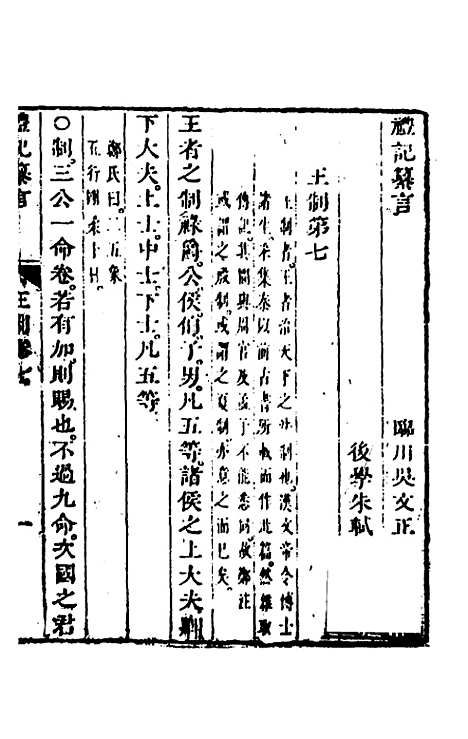 禮記纂言
臨川吳文正
後學朱軾
王制第七
王制者王者治天下之法制也漢文帝令博士
諸生采集秦以前古書所載而作此篇然雜取
傳記其間與周官及孟子不能悉同故鄭註
或謂之殷制或謂之夏制亦意之而已矣
王者之制祿爵公侯伯子男凡五等諸侯之上大夫卿
下大夫上士中士下士凡五等
鄭氏曰二五象
五行剛柔十日
〇制三公一命卷若有加則賜也不過九命次國之君
禮記纂言 王制卷七 一